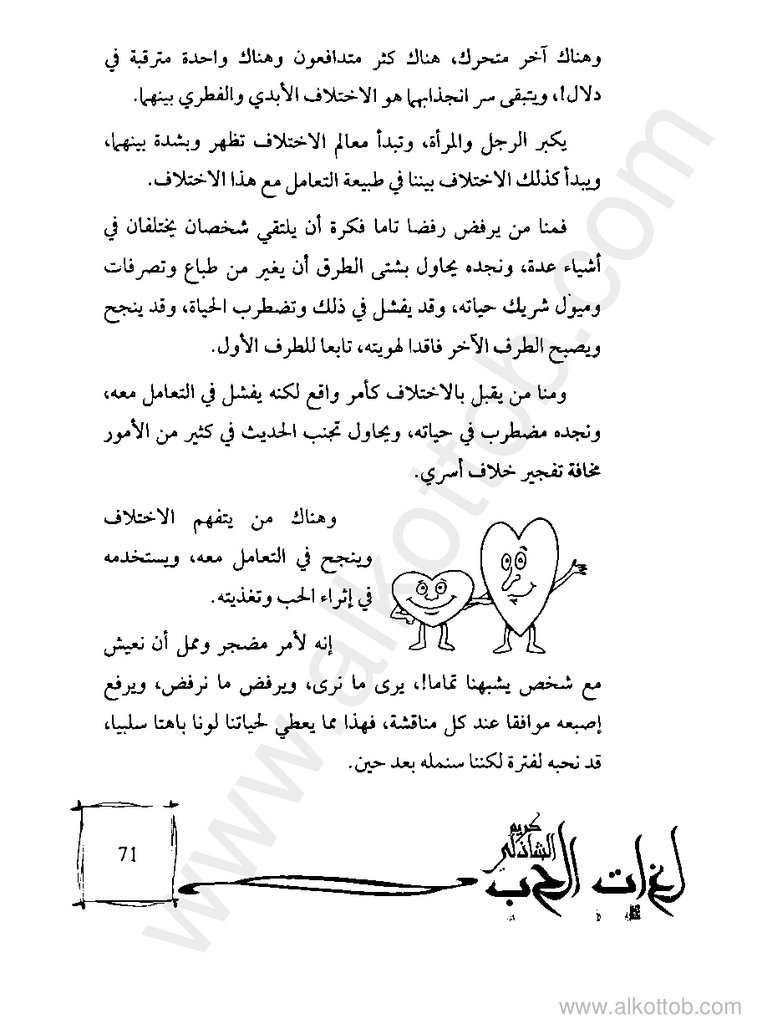 وهناك آخر متحرك، هناك كثر متدافعون وهناك واحدة مترقبة في
دلال!، ويتبقى سر انجذابهما هو الاختلاف الأبدي والفطري بينهما.
يكبر الرجل والمرأة، وتبدأ معالم الاختلاف تظهر وبشدة بينهما،
ويبدأ كذلك الاختلاف بيننا في طبيعة التعامل مع هذا الاختلاف.
فمنا من يرفض رفضا تاما فكرة أن يلتقي شخصان يختلفان في
أشياء عدة، ونجده يحاول بشتى الطرق أن يغير من طباع وتصرفات
وميول شريك حياته، وقد يفشل في ذلك وتضطرب الحياة، وقد ينجح
ويصبح الطرف الآخر فاقدا لهويته، تابعا للطرف الأول.
ومنا من يقبل بالاختلاف كأمر واقع لكنه يفشل في التعامل معه،
ونجده مضطرب في حياته، ويحاول تجنب الحديث في كثير من الأمور
مخافة تفجير خلاف أسري.
وهناك من يتفهم الاختلاف
وينجح في التعامل معه، ويستخدمه
في إثراء الحب وتغذيته.
إنه لأمر مضجر وممل أن نعيش
مع شخص يشبهنا تماما!، يرى ما نرى، ويرفض ما نرفض، ويرفع
إصبعه موافقا عند كل مناقشة، فهذا مما يعطي لحياتنا لونا باهتا سلبيا،
قد نحبه لفترة لكننا سنمله بعد حين.
كريم
الشاذلي
لغات الحب
71
www.alkottob.com
www.alkottob.com